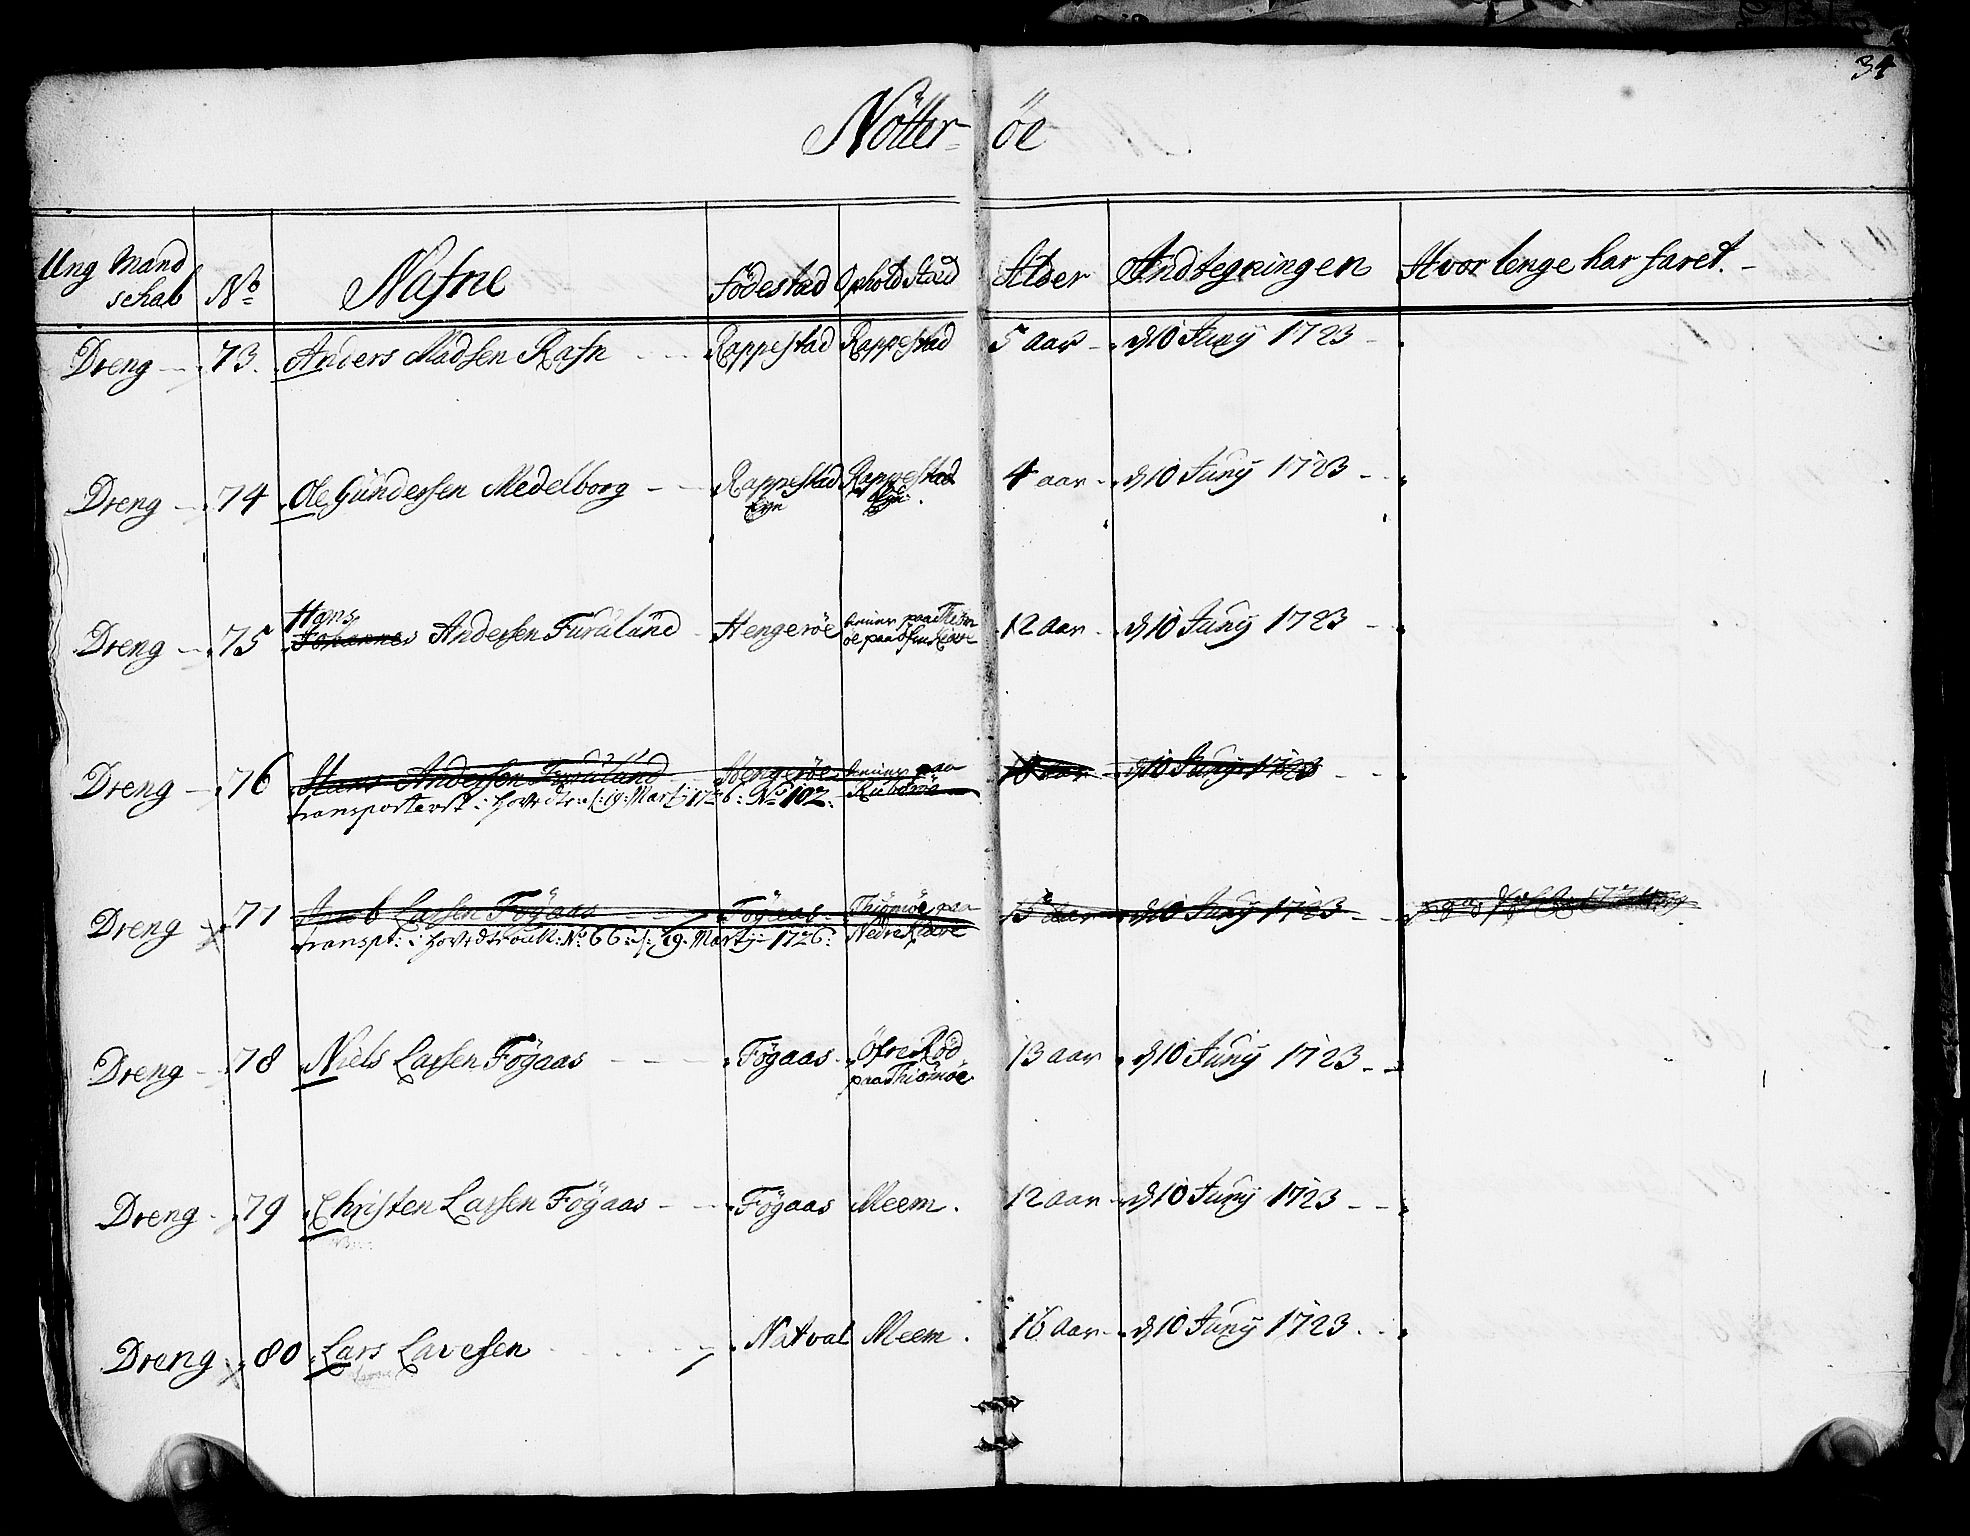 34
Nötter= öe
Ung Mand schab No Nafne Födestad Ophold Stad Alder Andtegningen Hvor lenge har faret.
Dreng 73. Anders Madsen Rafn Rappestad Rappestad 5 aar d 10 Junij 1723
Dreng 74 Ole Gündersen Medelborg Rappestad Eyn Rappestad Eyn 4 aar d 10 Junij 1723
Hans
Dreng 75 Johannes Andersen Furulund Hengeröe paa Thiöm 12 aar d 10 Junij 1723
öe paa
Dreng 76 Hans Andersen Furulund Hengeröe paa d 10 Junij 1723
transporterst i Hovedr: 19 Martj 1726: No 102.
Dreng 77 Lassen Fögaas Fögaas Thiömöe paa 15 aar d 10 Junij 1723
transpt: i Hovedroull: No 66 19 Martij 1726: Nedre Klöve
Dreng 78 Niels Lassen Fögaas Fögaas Öfre Röd 13 aar d 10 Junij 1723
paa Thiömöe
Dreng 79 Christen Lassen Fögaas Fögaas Meem. 12 aar d 10 Junij 1723
Dreng 80 Lars Lavesen Natval Meem. 16 aar d 10 Junij 1723